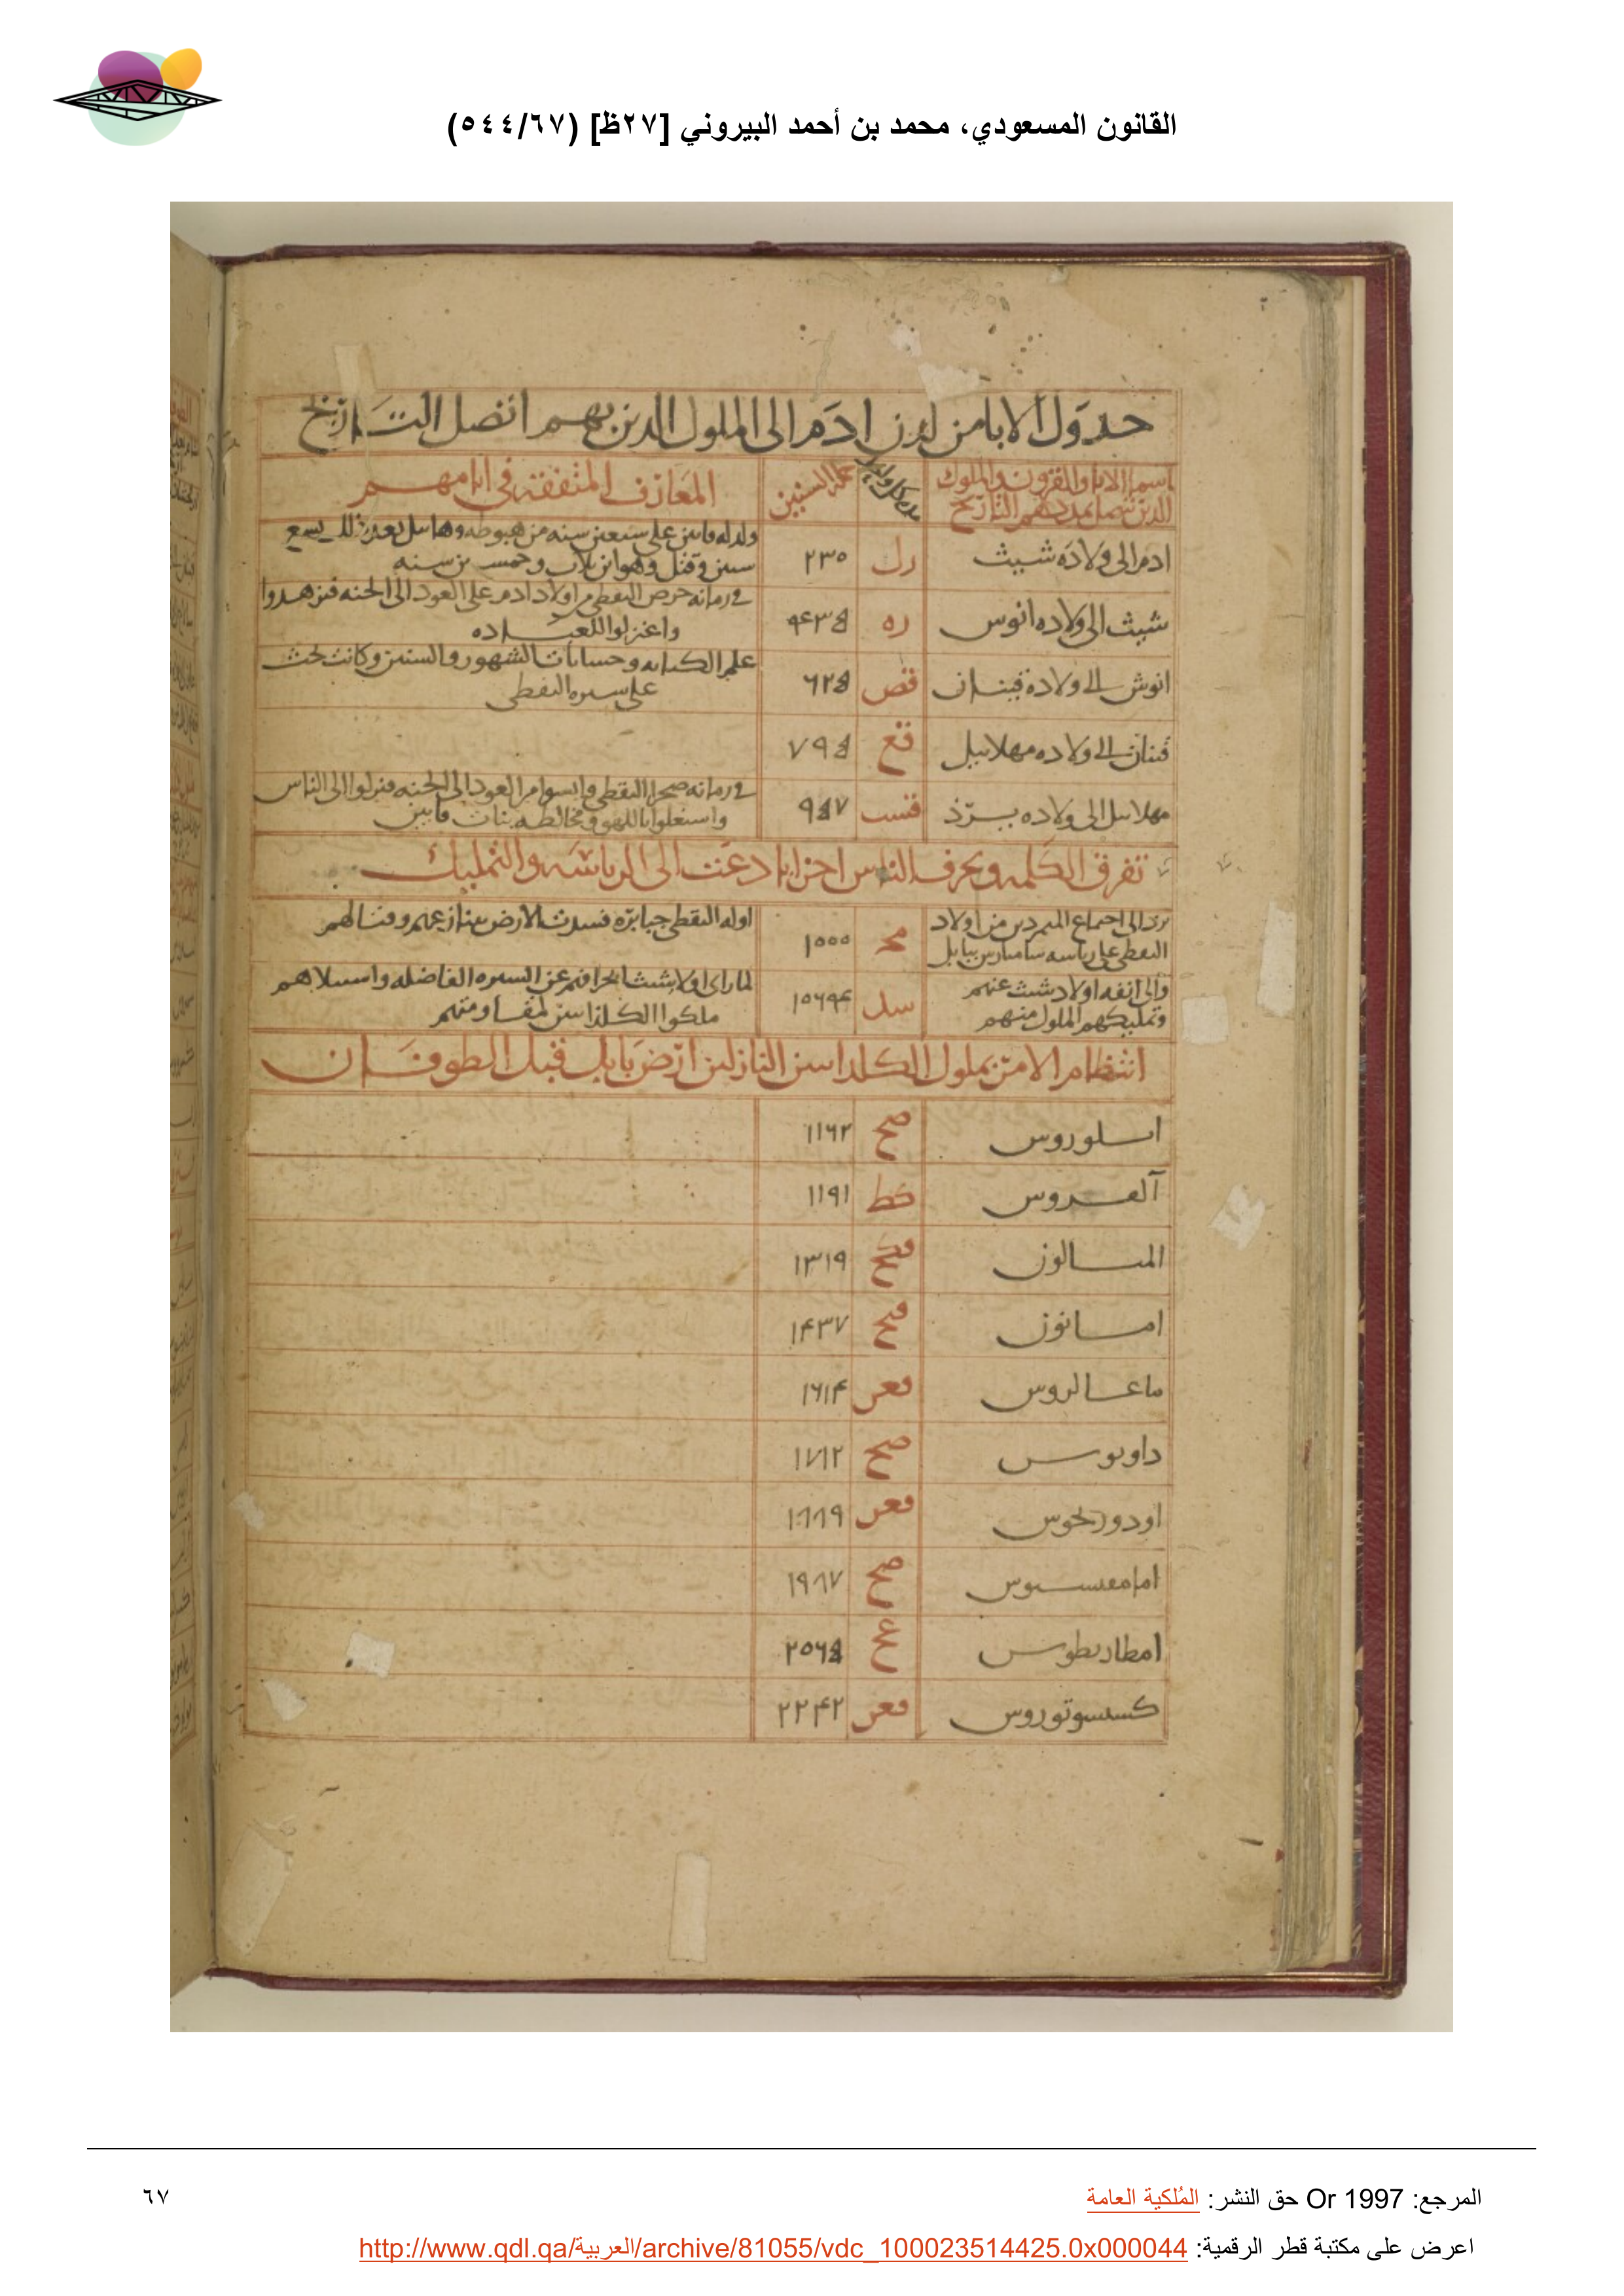 القانون المسعودي، محمد بن أحمد البيروني [٢٧ظ] (٥٤٤/٦٧)
جدول الابا من لدن ادم الى الملوك الذين بهم اتصل التــاريخ
اسما الابا والقرون والملوك
الذين تتصل بمددهم التاريخ
جملة السنين
المعارف المتفقة في ايامهم
ادم الى ولادة شيث
رل
٢٣٠
ولد له قاين على سبعين سنه من هبوطه وهابيل بعد ذلك بسبع
سنين وقتل وهو ابن ثلاث وخمسين سنه
شيث الى ولاده انوس
ره
۴٣٥
في زمانه حرص النقطي من اولاد ادم على العود الى الجنه فتزهدوا
واعتزلوا للعبــاده
انوش الى ولادة قينان
قص
٦٢٥
علم الكتابه وحسابات الشهور والسنين وكانت تحث
على سيره النقطى
قينان الى ولاده مهلاييل
قع
٧٩٥
مهلاييل الى ولاده يرذ
قسب
٩٥٧
في زمانه ضجر النقطى وايسوا من العود الى الجنه فنزلوا الى الناس
واشتغلوا باللهو ومخالطه بنات قاين
تفرق الكلمه وتحزف الناس احزابا دعت الى الرياسه والتمليك
يرد الى اجتماع المتمردين من اولاد
النقطى على رياسه ساميارس ببابل
مح
١٠٠٠
اوله النقطى جبابره فسدت الارض بتنازعهم وقتالهم
والى انفه اولاد شث عنهم
وتمليكهم الملوك منهم
سد
١٠٦۴
لما راى اولاد شيث انحرافهم عن السيره الفاضله واستيلاهم
ملكوا الكلدانيين لمقاومتهم
انتظام الامر بملوك الكلدانيين النازلين ارض بابل قبل الطوفــان
اسلوروس
صح
١١٦٢
العــروس
كط
١١٩١
المســالون
قكح
١٣١٩
امــانون
قيح
١۴٣٧
ماعــالروس
قعز
١٦١۴
داوبوس
صح
١٧١٢
اودورنحوس
قعز
١٨٨٩
امامعســوس
صح
١٩٨٧
امطاربطوس
عح
٢٠٦٥
كسسوتوروس
قعز
٢٢۴٢
المرجع: Or 1997 حق النشر: المُلكية العامة
٦٧
اعرض على مكتبة قطر الرقمية: http://www.qdl.qa/العربية/archive/81055/vdc_100023514425.0x000044